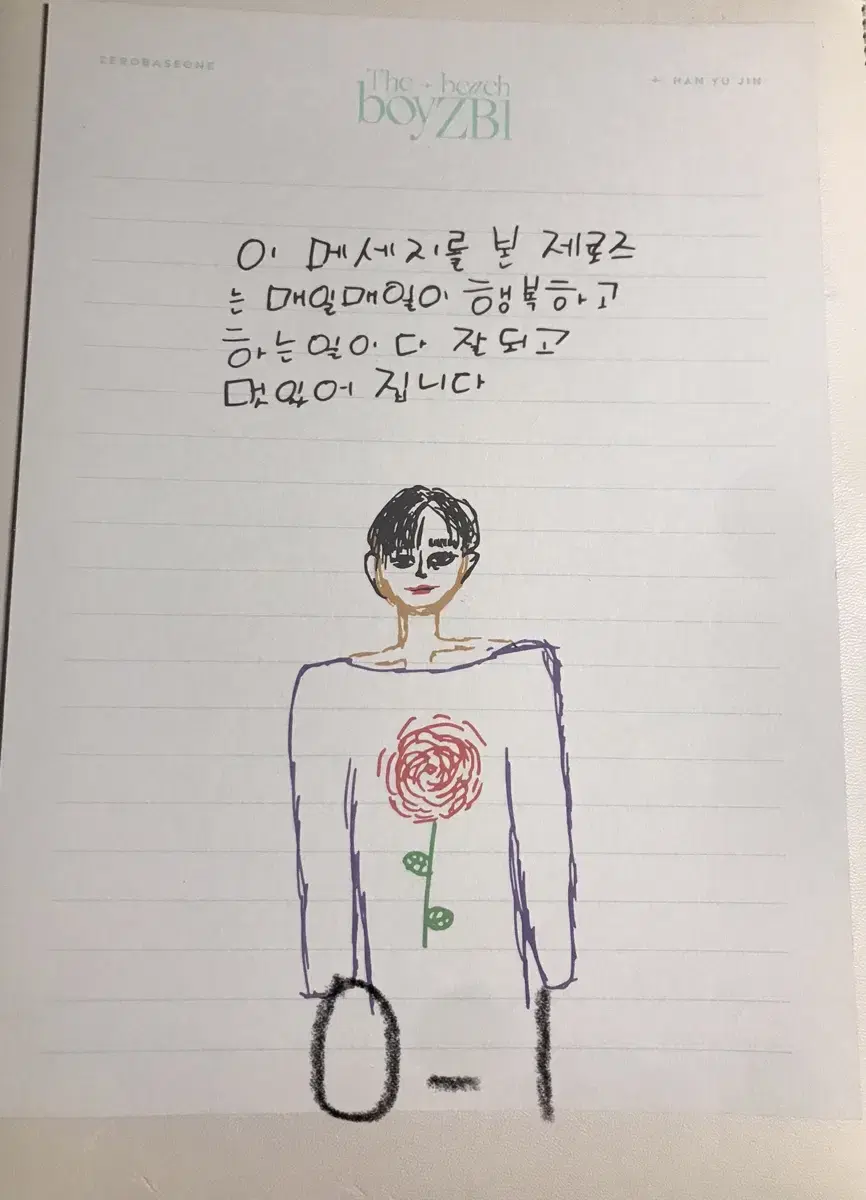 ZEROBASEONE
The + beach
boyZB1
+ HAN YU JIN
이 메세지를 본 제로즈
는 매일매일이 행복하고
하는일이 다 잘되고
멋있어 집니다